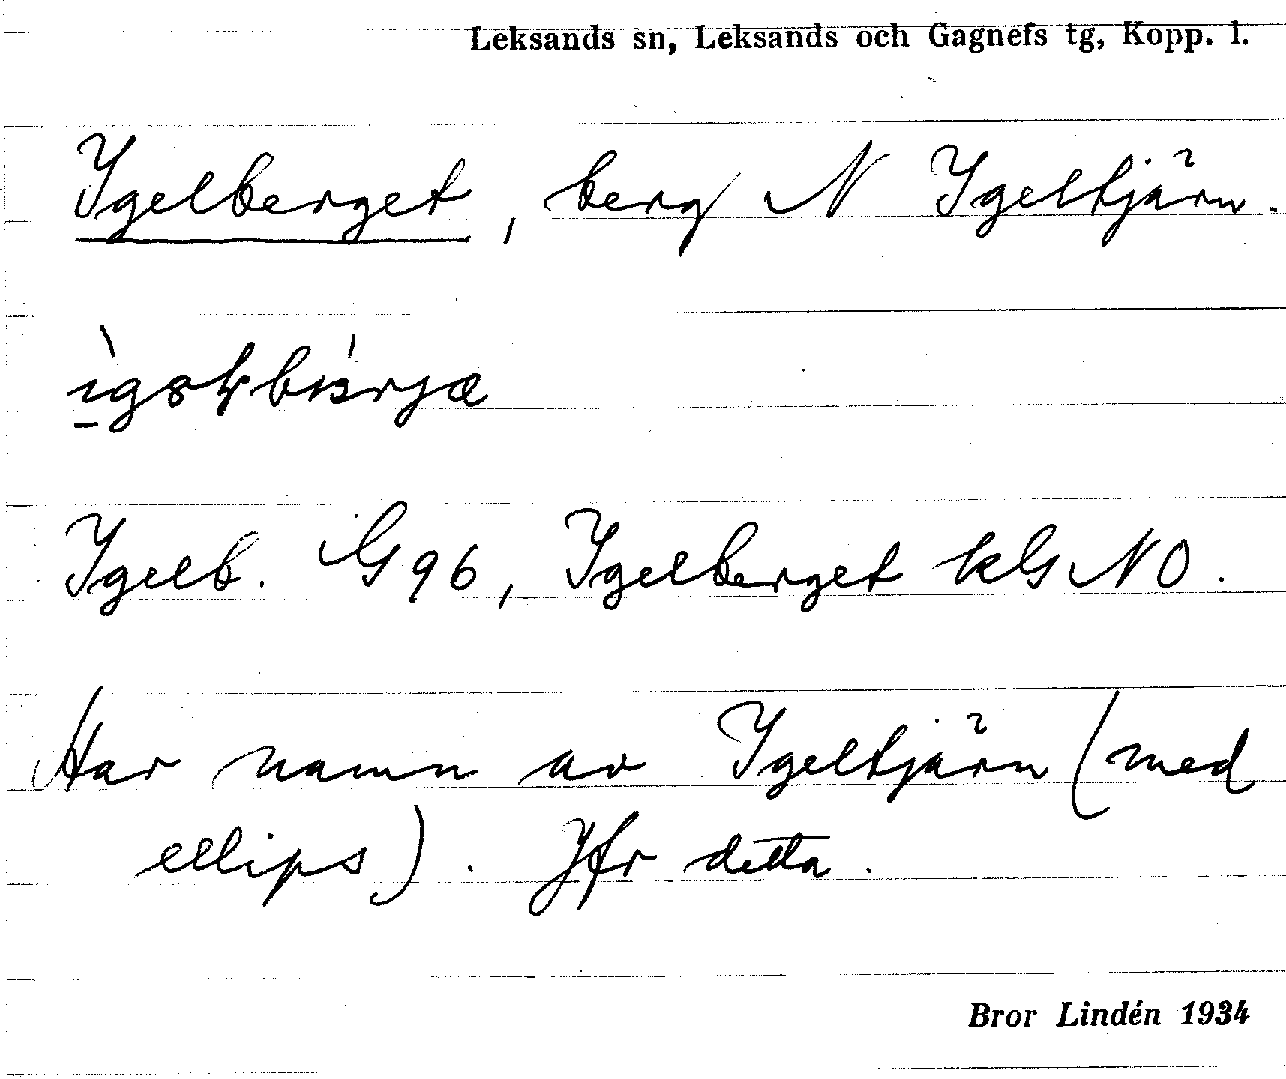 Leksands sn, Leksands och Gagnefs tg, Kopp. l.
Igelberget, berg N Igeltjärn.
Igelb. G 96, Igelberget kG NO.
Har namn av Igeltjärn (med
ellips). Jfr detta.
Bror Lindén 1934